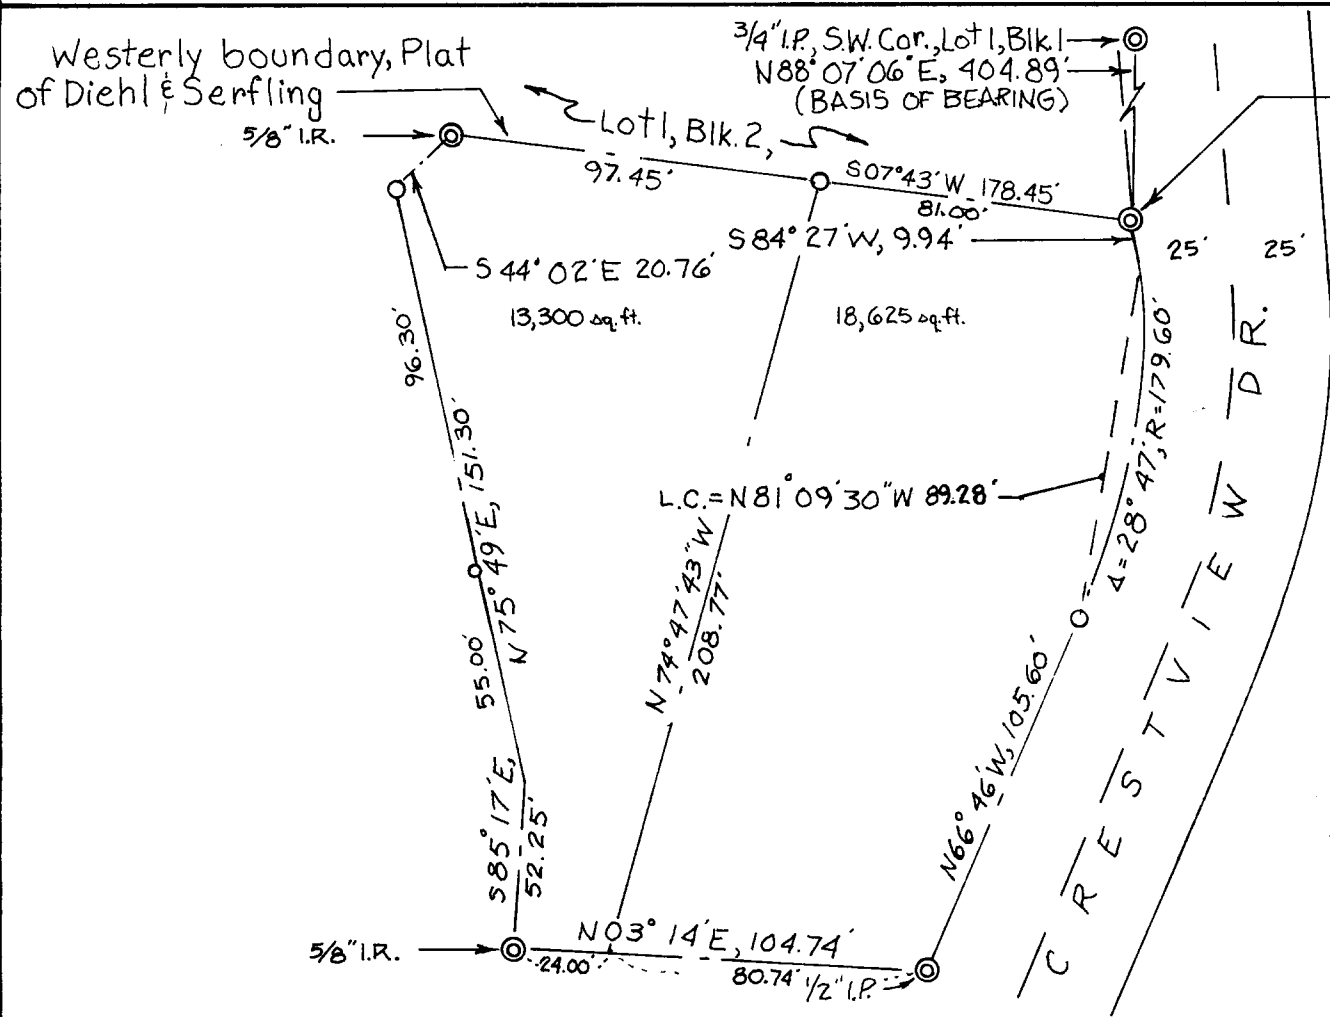 Westerly boundary, Plat
of Diehl & Serfling
3/4" I.P., S.W. Cor., Lot 1, Blk. 1
N88°07'06"E, 404.89'
(BASIS OF BEARING)
5/8" I.R.
Lot 1, Blk. 2,
97.45'
S07°43'W 178.45'
81.00'
S84°27'W, 9.94'
25' 25'
S44°02'E 20.76'
13,300 sq. ft.
18,625 sq. ft.
96.30'
N75°49'E, 151.30'
55.00'
L.C.=N81°09'30"W 89.28'
Δ=28°47', R=179.60'
N74°47'43"W
208.77'
N66°46'W, 105.60'
CRESTVIEW DR.
S85°17'E,
52.25'
5/8" I.R.
N03°14'E, 104.74'
24.00'
80.74'
1/2" I.P.